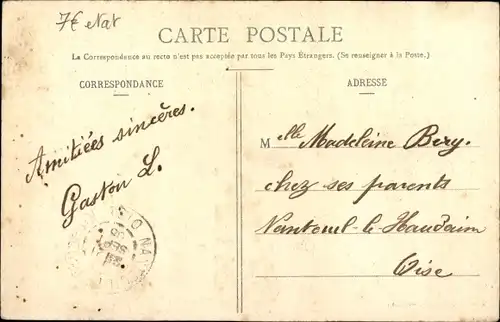 7€ etat
CARTE POSTALE
La Correspondance au recto n'est pas acceptée par tous les Pays Étrangers. (Se renseigner à la Poste.)
CORRESPONDANCE
ADRESSE
Amitiées sincères.
Gaston L.
Melle Madeleine Bery.
chez ses parents
Nanteuil-le-Haudoin
Oise